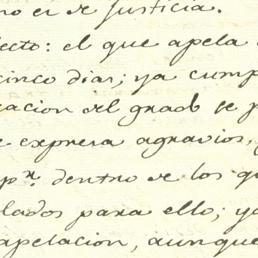 no es de Justicia.
ecto: el que apela
cinco dias; ya cump
cacion del grado se p
e expresa agravios,
pr. dentro de los q
lados para ello; ya
apelacion, aunque